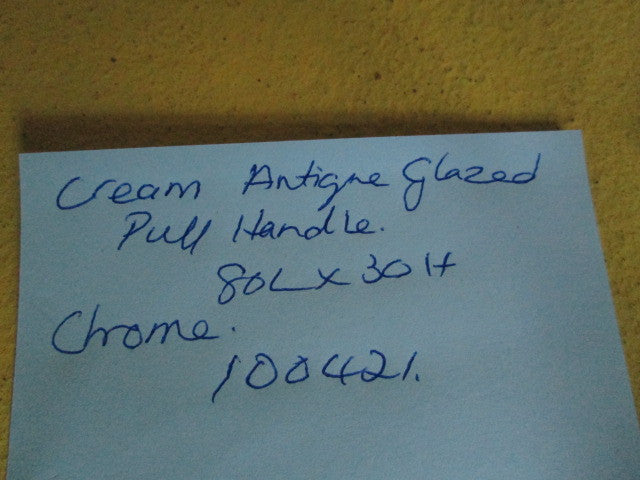 Cream Antique Glazed
Pull Handle.
80L x 30H
Chrome.
100421.